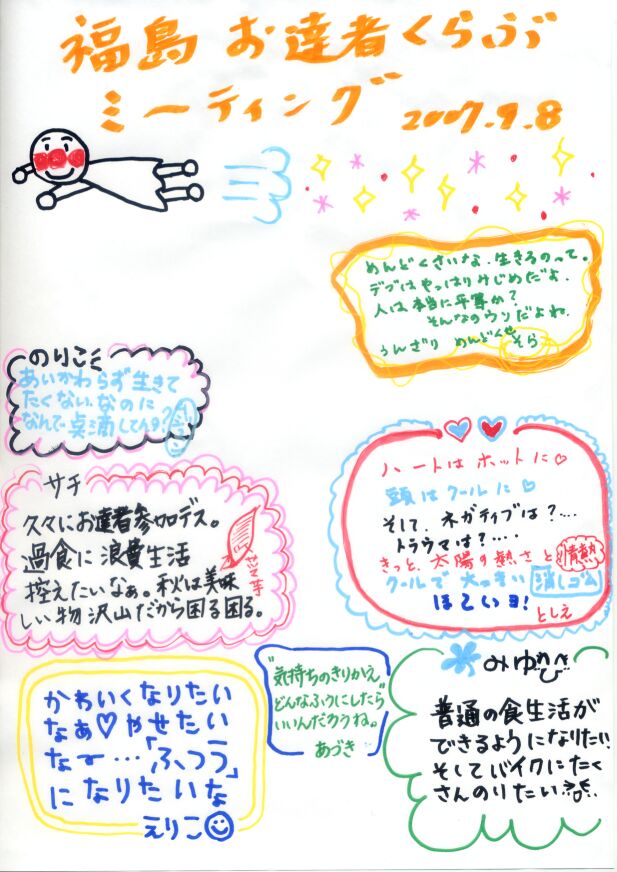 福島 お達者くらぶ
ミーティング 2007.9.8
めんどくさいな.生きるのって。
デブはやっぱりみじめだよ.
人は本当に平等か?
そんなのウソだよね.
うんざり めんどくせ
そら
のりこ
あいかわらず生きて
たくない.なのに
なんで点滴してんの?
サチ
久々にお達者参加デス。
過食に浪費生活
控えたいなぁ。秋は美味
しい物沢山だから困る困る。
ハートはホットに♡
頭はクールに♡
そして.ネガティブは?....
トラウマは?....
きっと、太陽の熱さと情熱
クールで大っきい消しゴム
ほしいヨ!
としえ
かわいくなりたい
なぁ♡やせたい
なー…「ふつう」
になりたいな
えりこ
"気持ちのきりかえ"
どんなふうにしたら
いいんだろうね。
あづき
みゆ
普通の食生活が
できるようになりたい
そしてバイクにたく
さんのりたい